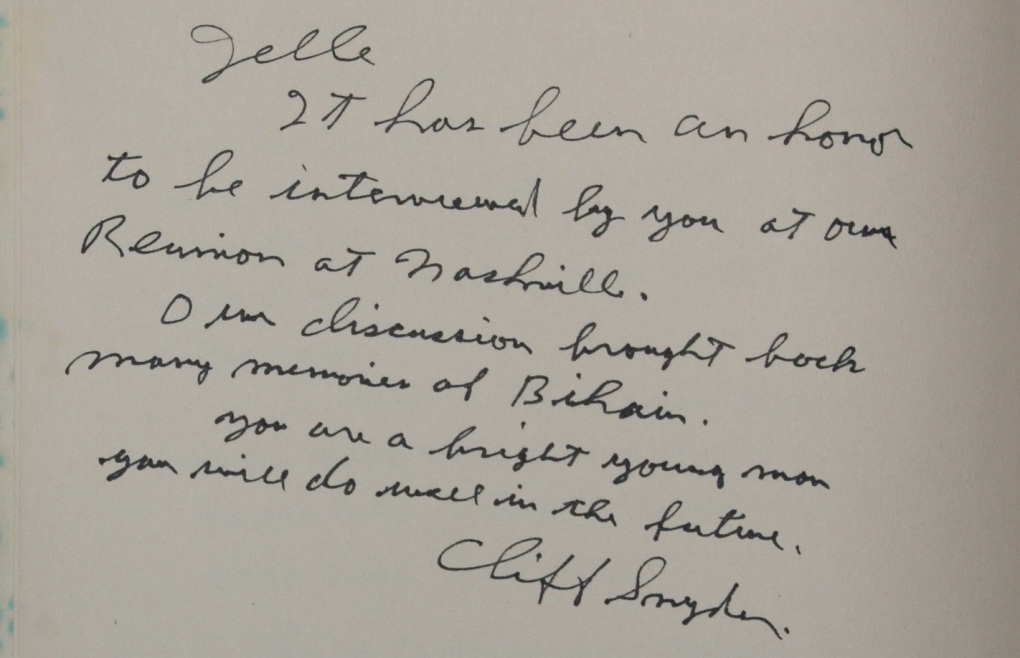 Jelle
It has been an honor
to be interviewed by you at our
Reunion at Nashville.
Our discussion brought back
many memories of Bihain.
you are a bright young man
you will do well in the future.
Cliff Snyder.